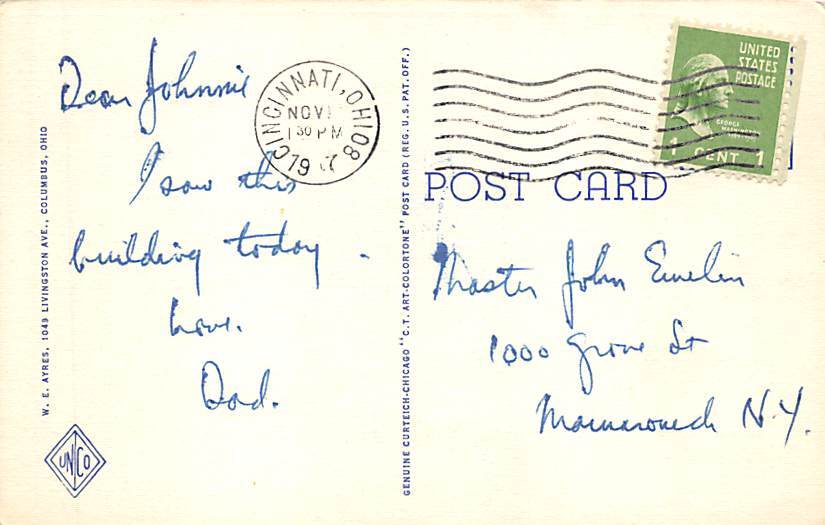 Dear Johnnie
I saw this
building today.
Love.
Dad.
W. E. AYRES, 1049 LIVINGSTON AVE., COLUMBUS, OHIO
UNCO
GENUINE CURTEICH-CHICAGO "C.T. ART-COLORTONE" POST CARD (REG. U.S. PAT. OFF.)
CINCINNATI, OHIO 8
NOV
1 30 PM
19
UNITED
STATES
POSTAGE
GEORGE
WASHINGTON
1 CENT 1
POST CARD
Master John Emelin
1000 Grove St
Mamaroneck N.Y.